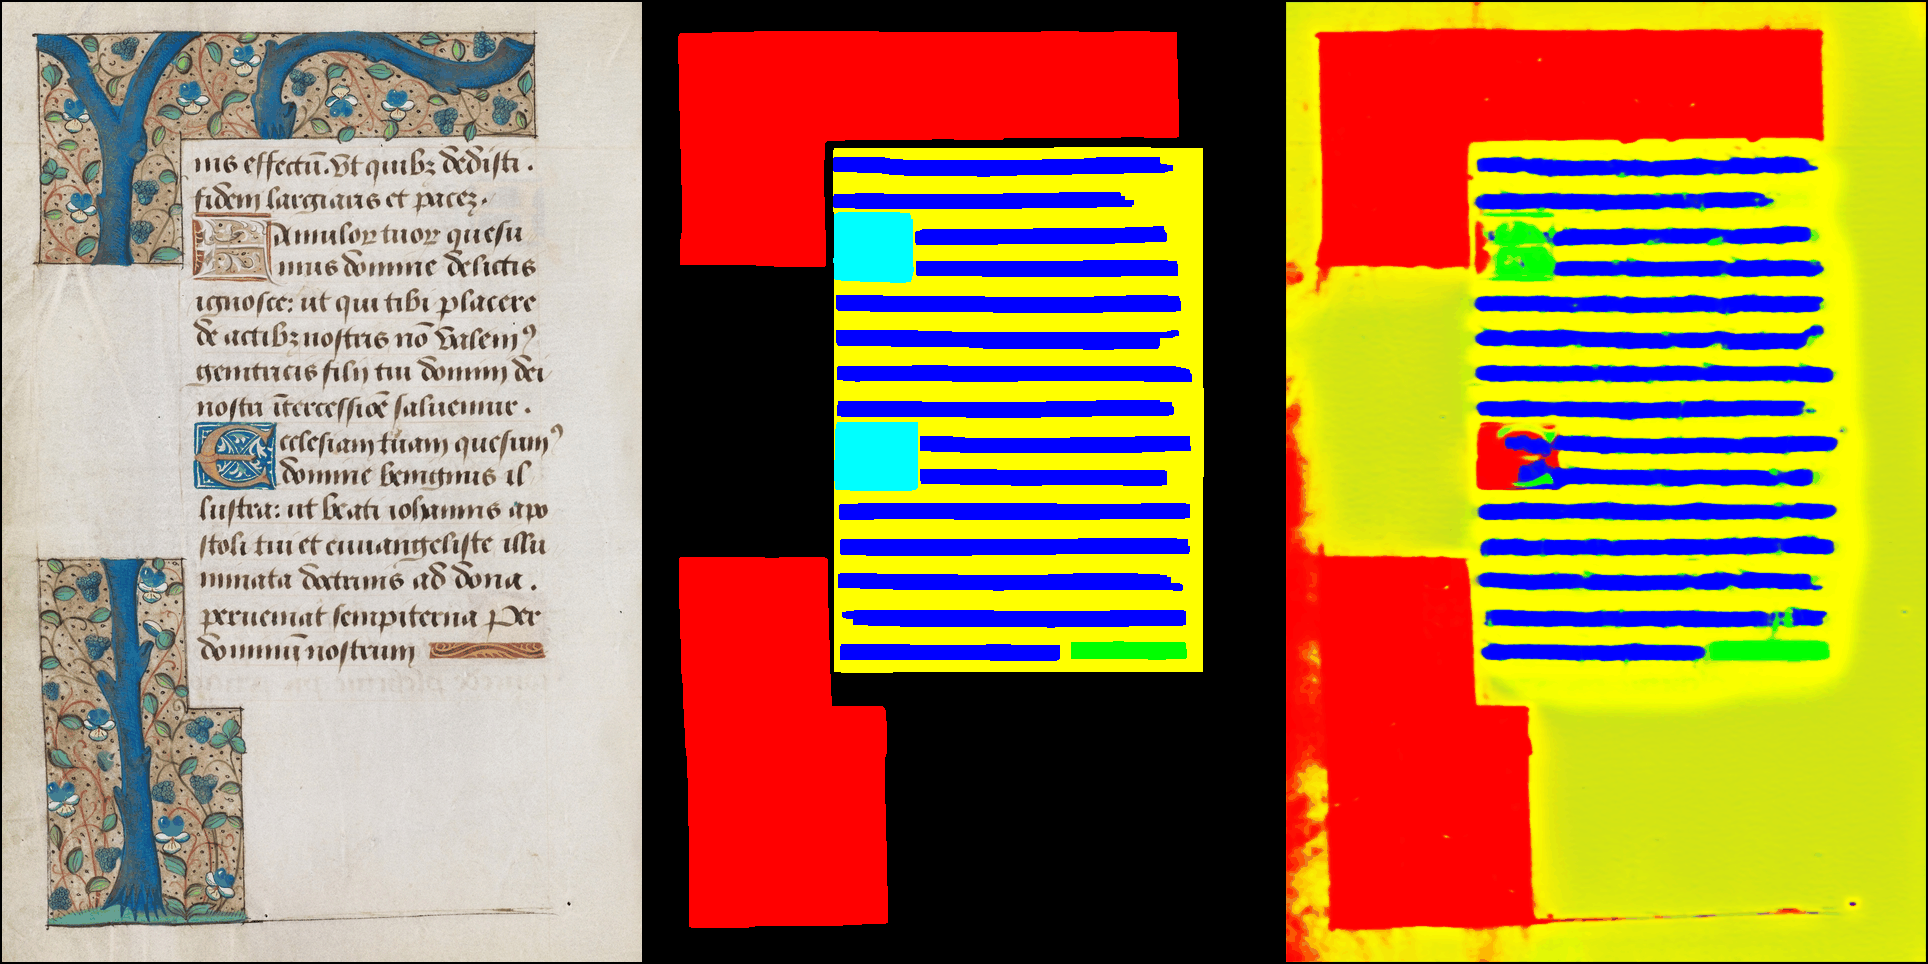 nis effectū. Vt quibꝫ dedisti .
fidem largiaris et pacez.
Famuloꝝ tuoꝝ quesu
mus domine delictis
ignosce: ut qui tibi placere
de actibꝫ nostris nō valemꝰ
genitricis filij tui domini dei
nostri ītercessiōe saluemur .
Ecclesiam tuam quesumꝰ
domine benignus il
lustra: ut beati iohannis apo
stoli tui et euuangeliste illu
minata doctrinis ad dona .
perueniat sempiterna Per
dominū nostrum